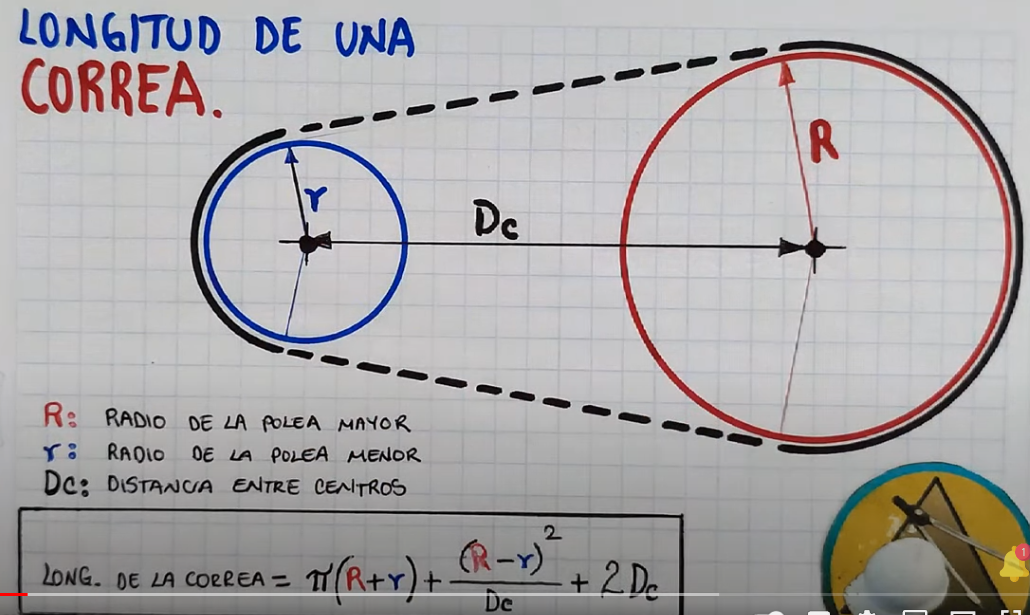 LONGITUD DE UNA
CORREA.
R
r
Dc
R: RADIO DE LA POLEA MAYOR
r: RADIO DE LA POLEA MENOR
Dc: DISTANCIA ENTRE CENTROS
LONG. DE LA CORREA = π(R+r) + (R-r)²/Dc + 2Dc
1